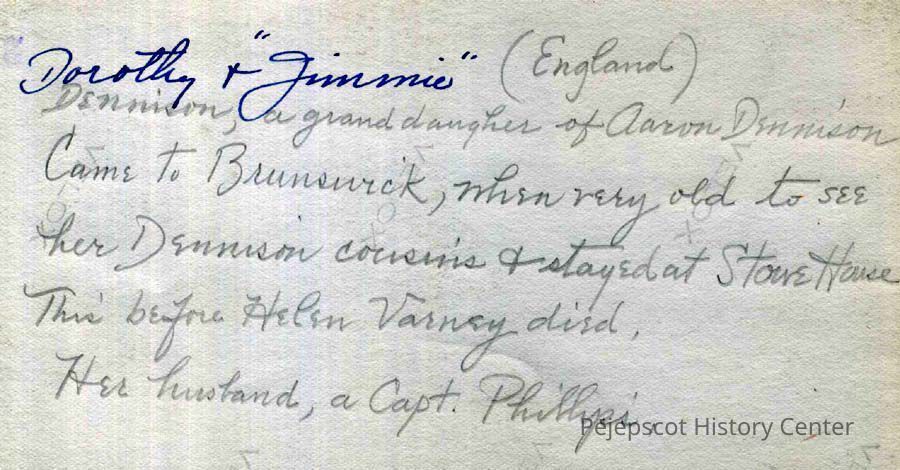 Dorothy & "Jimmie" (England)
Dennison, a granddaugher of Aaron Dennison
Came to Brunswick, when very old to see
her Dennison cousins & stayed at Stowe House
This before Helen Varney died.
Her husband, a Capt. Phillips.
Pejepscot History Center